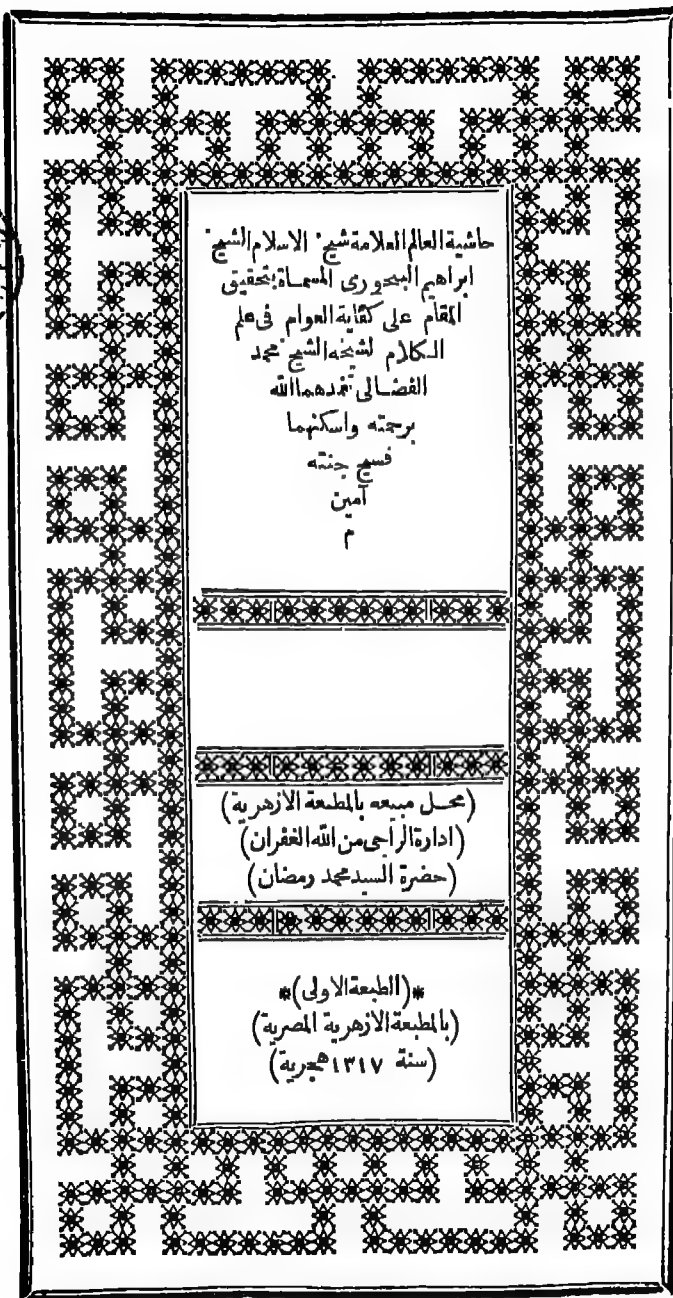 حاشية العالم العلامة شيخ الاسلام الشيخ
ابراهيم البيجورى المسماة بتحقيق
المقام على كفاية العوام فى علم
الكلام لشيخه الشيخ محمد
الفضالى تغمدهما الله
برحمته واسكنهما
فسيح جنته
آمين
م
(محل مبيعه بالمطبعة الازهرية)
(ادارة الراجى من الله الغفران)
(حضرة السيد محمد رمضان)
*(الطبعة الاولى)*
(بالمطبعة الازهرية المصرية)
(سنة ١٣١٧ هجرية)